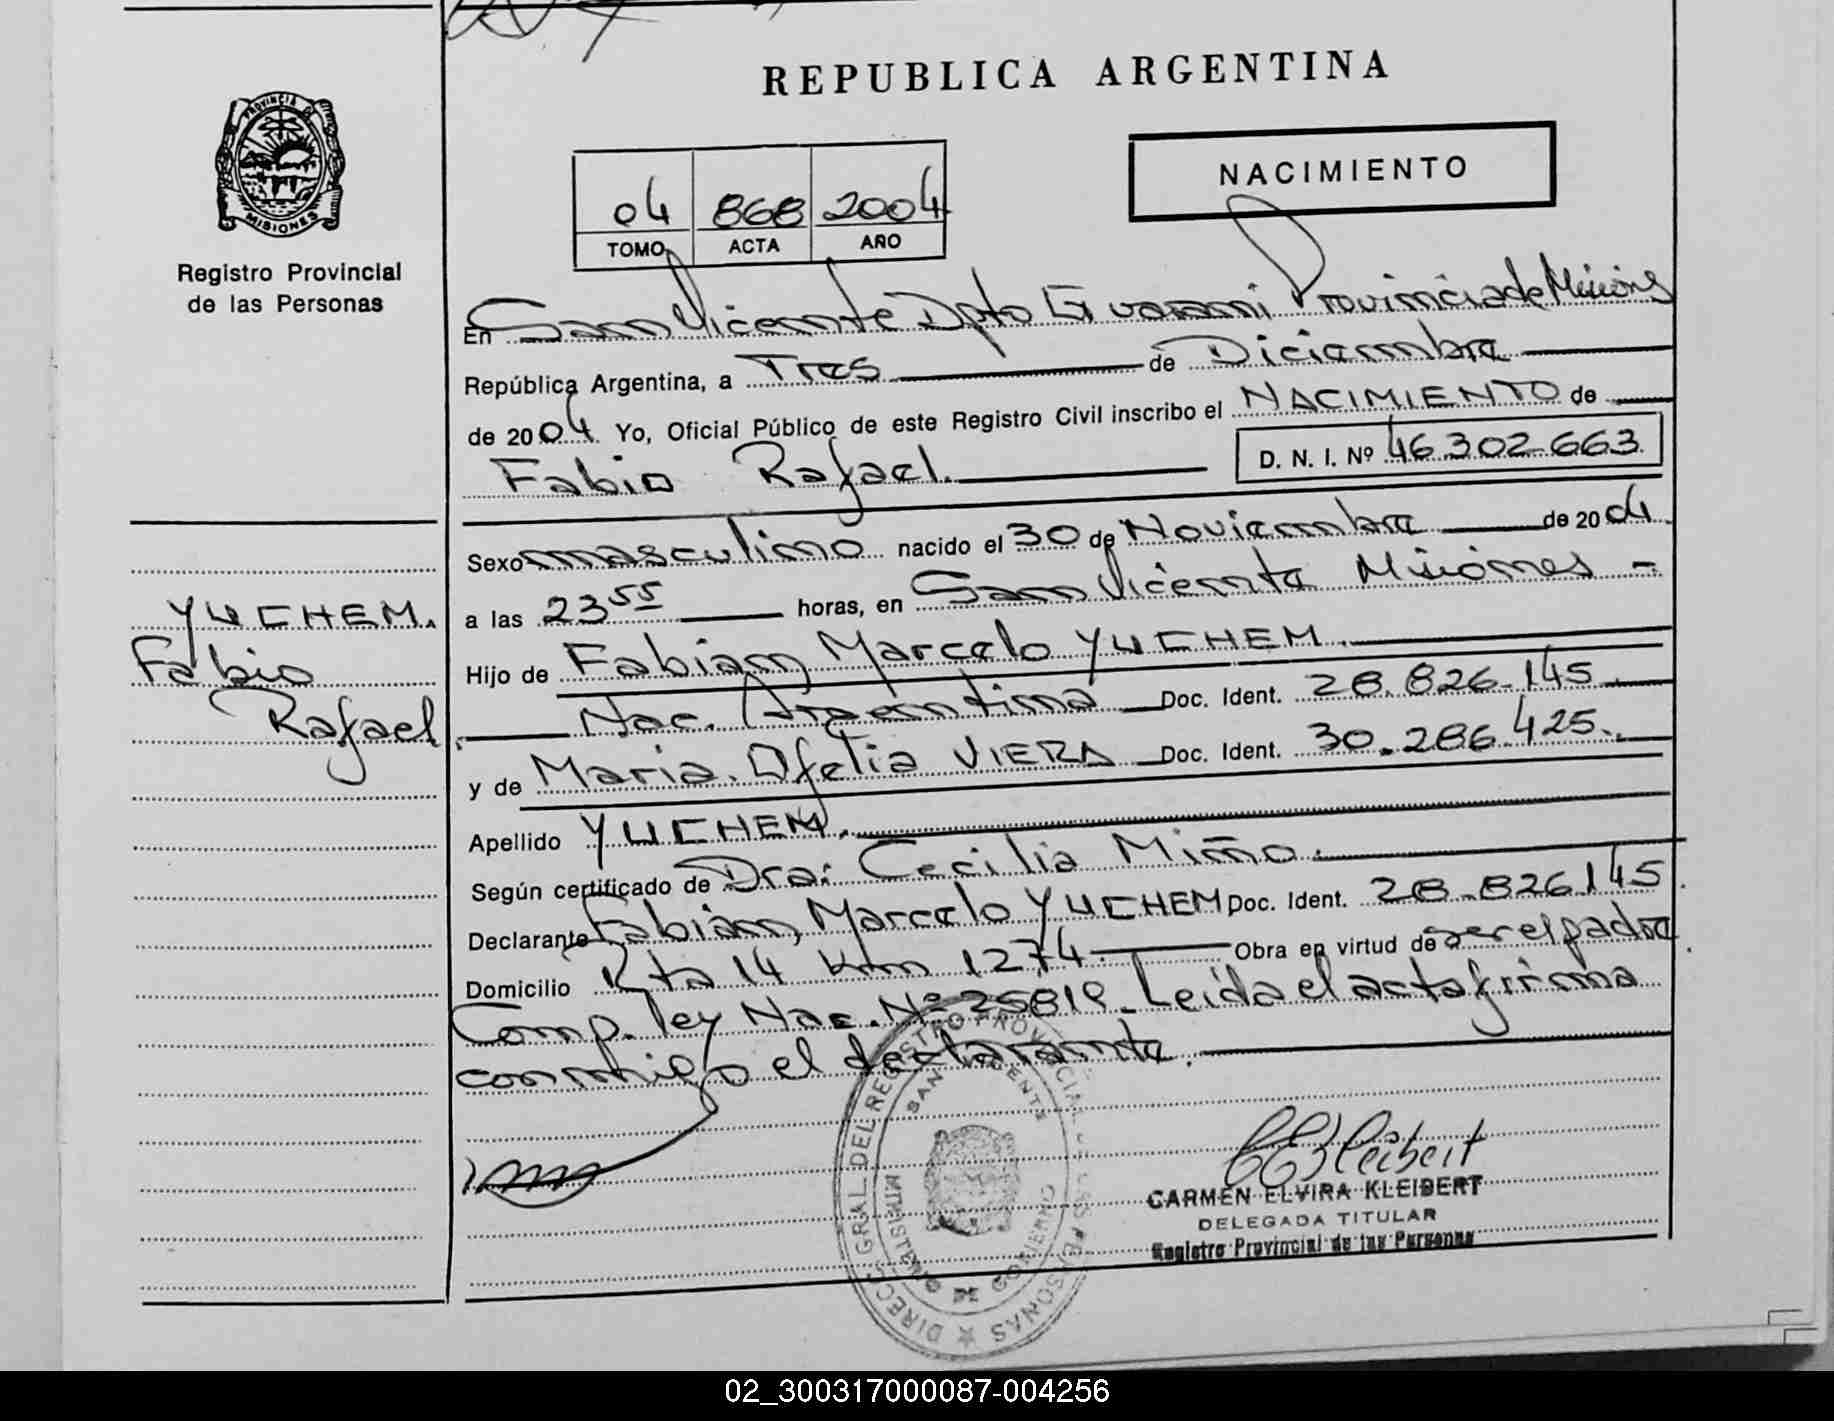 REPUBLICA ARGENTINA
PROVINCIA DE
MISIONES
Registro Provincial
de las Personas
04 868 2004
TOMO ACTA AÑO
NACIMIENTO
En San Vicente Dpto Guarani Provincia de Misiones
República Argentina, a Tres de Diciembre
de 2004 Yo, Oficial Público de este Registro Civil inscribo el NACIMIENTO de
Fabio Rafael. D. N. I. Nº 46.302-663
Sexo masculino nacido el 30 de Noviembre de 2004
a las 23 55 horas, en San Vicente Misiones -
YUCHEM.
Fabio
Rafael
Hijo de Fabian Marcelo YUCHEM.
Nac. Argentina Doc. Ident. 28.826-145
y de Maria Ofelia VIERA Doc. Ident. 30.286.425.
Apellido YUCHEM.
Según certificado de Dra: Cecilia Miño.
Declarante Fabian Marcelo YUCHEM Doc. Ident. 28.826.145
Domicilio Rta 14 Km 1274 Obra en virtud de ser el padre
Comp. ley Nac. Nº 25819 Leida el acta firma
conmigo el declarante.
DIRECC. GRAL. DEL REGISTRO PROVINCIAL DE LAS PERSONAS
SAN VICENTE
MINISTERIO DE GOBIERNO
CEKleibert
CARMEN ELVIRA KLEIBERT
DELEGADA TITULAR
Registro Provincial de las Personas
02_300317000087-004256